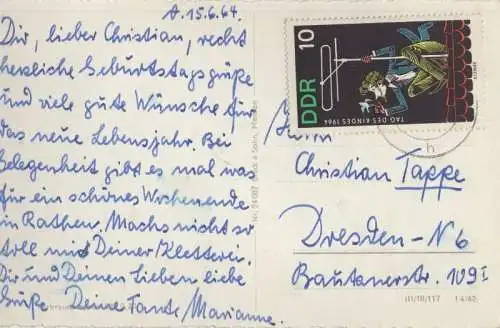 A. 15.6.64.
Dir, lieber Christian, recht
herzliche Geburtstagsgrüße
und viele gute Wünsche für
das neue Lebensjahr. Bei
Gelegenheit gibt es mal was
für ein schönes Wochenende
in Rathen. Machs nicht so
toll mit Deiner Kletterei.
Dir und Deinen Lieben liebe
Grüße Deine Tante Marianne.
DDR 10
TAG DES KINDES 1964
h
Christian Tappe
Dresden-N 6
Bautznerstr. 109 I
III/18/117 1 4/62